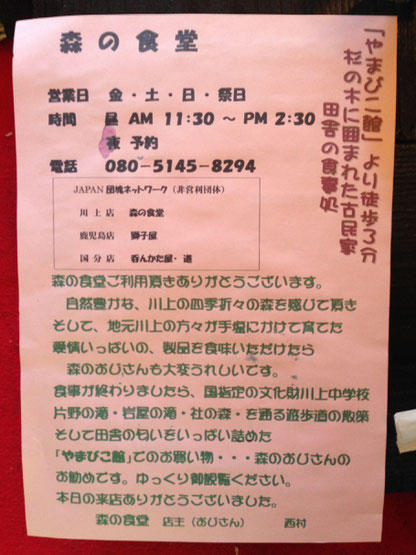 森の食堂
「やまびこ館」より徒歩3分
杉の木に囲まれた古民家
田舎の食事処
営業日 金・土・日・祭日
時間 昼 AM 11:30 ～ PM 2:30
夜 予約
電話 080-5145-8294
JAPAN 団塊ネットワーク（非営利団体）
川上店 森の食堂
鹿児島店 獅子屋
国分店 呑んかた屋・道
森の食堂ご利用頂きありがとうございます。
自然豊かな、川上の四季折々の森を感じて頂き
そして、地元川上の方々が手塩にかけて育てた
愛情いっぱいの、製品を食味いただけたら
森のおじさんも大変うれしいです。
食事が終わりましたら、国指定の文化財川上中学校
片野の滝・岩屋の滝・社の森・を通る遊歩道の散策
そして田舎の匂いをいっぱい詰めた
「やまびこ館」でのお買い物・・・森のおじさんの
お勧めです。ゆっくり御観覧ください。
本日の来店ありがとうございました。
森の食堂 店主（おじさん） 西村